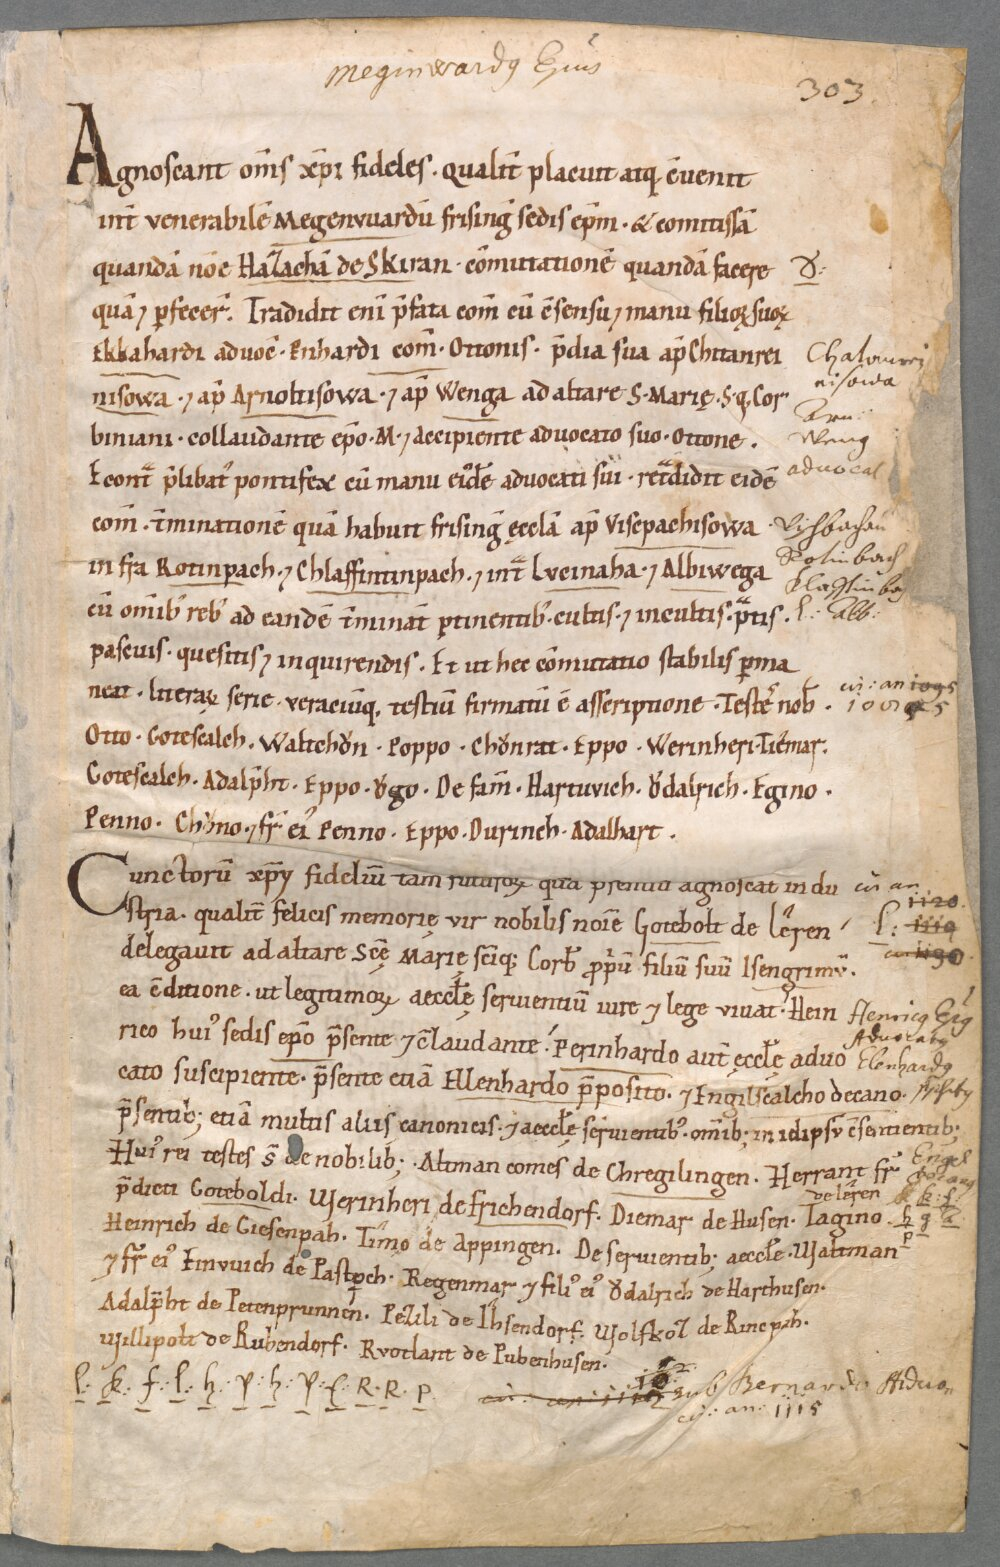 Meginwardꝯ Ep̄us
303
Agnoscant om̄s xp̄i fideles . qualit̄ placuit atq; ēvenit
int̄ venerabilē Megenvuardū frising̅ sedis ep̄m . & comitissā
quandā nōe Hazachā de Skiran . cōmutationē quandā facere
quā ⁊ ꝑfecer̄ . Tradidit eni p̄fata com̄ cū c̄sensu ⁊ manu filioꝝ suoꝝ
Ekkahardi advoc̄ . Enhardi com̄ . Ottonis . p̄dia sua ap̄ Chitanrei
nisowa . ⁊ ap̄ Arnoltisowa . ⁊ ap̄ Wenga ad altare S . Marię . S . q; Cor
biniani . collaudante ep̄o . M . ⁊ accipiente advocato suo . Ottone .
Econt̄ p̄libat᾽ pontifex cū manu ei᾽dē advocati sui . ret̄didit eidē
com̄ . t̄minationē quā habuit frising̅ ęcclā ap̄ Viscpachisowa
infra Rotinpach . ⁊ Chlaffintinpach . ⁊ int̄ Lvcinaha . ⁊ Albiwega
cū omīb᾽ reb᾽ ad eandē t̄minat̄ ꝑtinentib᾽ . cultis . ⁊ incultis . p̄tis .
pascuis . quesitis ⁊ inquirendis . Et ut hec cōmutatio stabilis ꝑma
neat . literaꝝ serie . veraciūq; testiū firmatū ē asscriptione . Testes nob̄ .
Otto . Gotescalch . Waltchŏn . Poppo . Chŏnrat . Eppo . Werinheri . Tiemar .
Gotescalch . Adalp̄ht . Eppo . Ŏgo . De fam̄ . Hartuvich . Ŏdalrich . Egino .
Penno . Chŏno . ⁊ fr̄ ei᾽ Penno . Eppo . Durinch . Adalhart .
Chatounrei
nisowa
Arn:
Weng
advocat
Rotinbach
l: Alb:
cir: an 1095
Cunctorū xp̄ı fideliū tam futuroꝝ quā p̄sentiū agnoscat indu
stria . qualit̄ felicis memorię vir nobilis noīe Gotebolt de léren
delegavit ad altare Scē Marię sciq; Corb̄ ꝓpriū filiū suū Isengrimū .
ea c̄ditione . ut legitimoꝝ aeccłę servientiū iure ⁊ lege vivat . Hein
rico hui᾽ sedis ep̄o p̄sente ⁊ c̄laudante . Perinhardo aut̄ ęccłę advo
cato suscipiente . p̄sente etiā Ellenhardo p̄posito . ⁊ Engilscalcho decano .
p̄sentib; etiā multis aliis canonicis . ⁊ aeccłę servientib᾽ . omīb; in idipsū c̄sentientib;
Hui᾽ rei testes s̄ de nobilib; . Altman comes de Chregilingen . Herrant fr̄
p̄dicti Goteboldi . Werinheri de Frichendorf . Diemar de Husen . Tagino de léren
Heinrich de Giesenpah . Timo de Appingen . De servientib; aeccłę . Waltman
⁊ fr̄ ei᾽ Einwich de Pastpch . Regenmar ⁊ fili᾽ ei᾽ Ŏdalrich de Harthusen .
Adalp̄ht de Petenprunnen . Pezili de Ihsendorf . Wolfkoz de Rincpah .
Willipolt de Rubendorf . Rvotlant de Pubenhusen .
cir an
1120
1119
Henricꝯ Ep̄s
Advocatꝯ
Elenhardꝯ
l . k . f . l . h . p . h . p . l . R . R . p
sub Bernardo Advo
cir: an: 1115